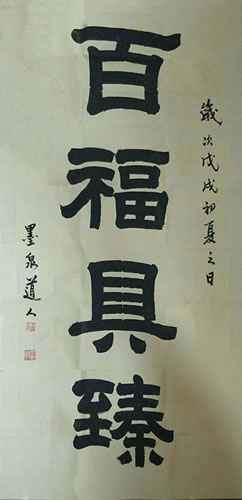 歲次戊戌初夏之日
百福具臻
墨泉道人